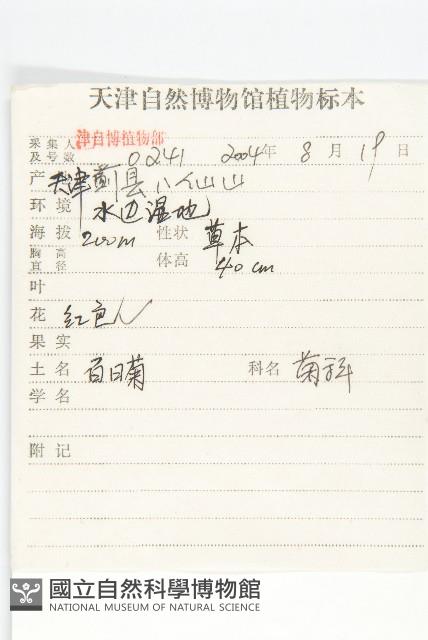 天津自然博物馆植物标本
采集人及号数 津自博植物部 0241 2004年 8月 19日
产地 天津蓟县八仙山
环境 水边湿地
海拔 200m 性状 草本
胸高直径 体高 40cm
叶
花 红色
果实
土名 百日菊 科名 菊科
学名
附记
國立自然科學博物館
NATIONAL MUSEUM OF NATURAL SCIENCE